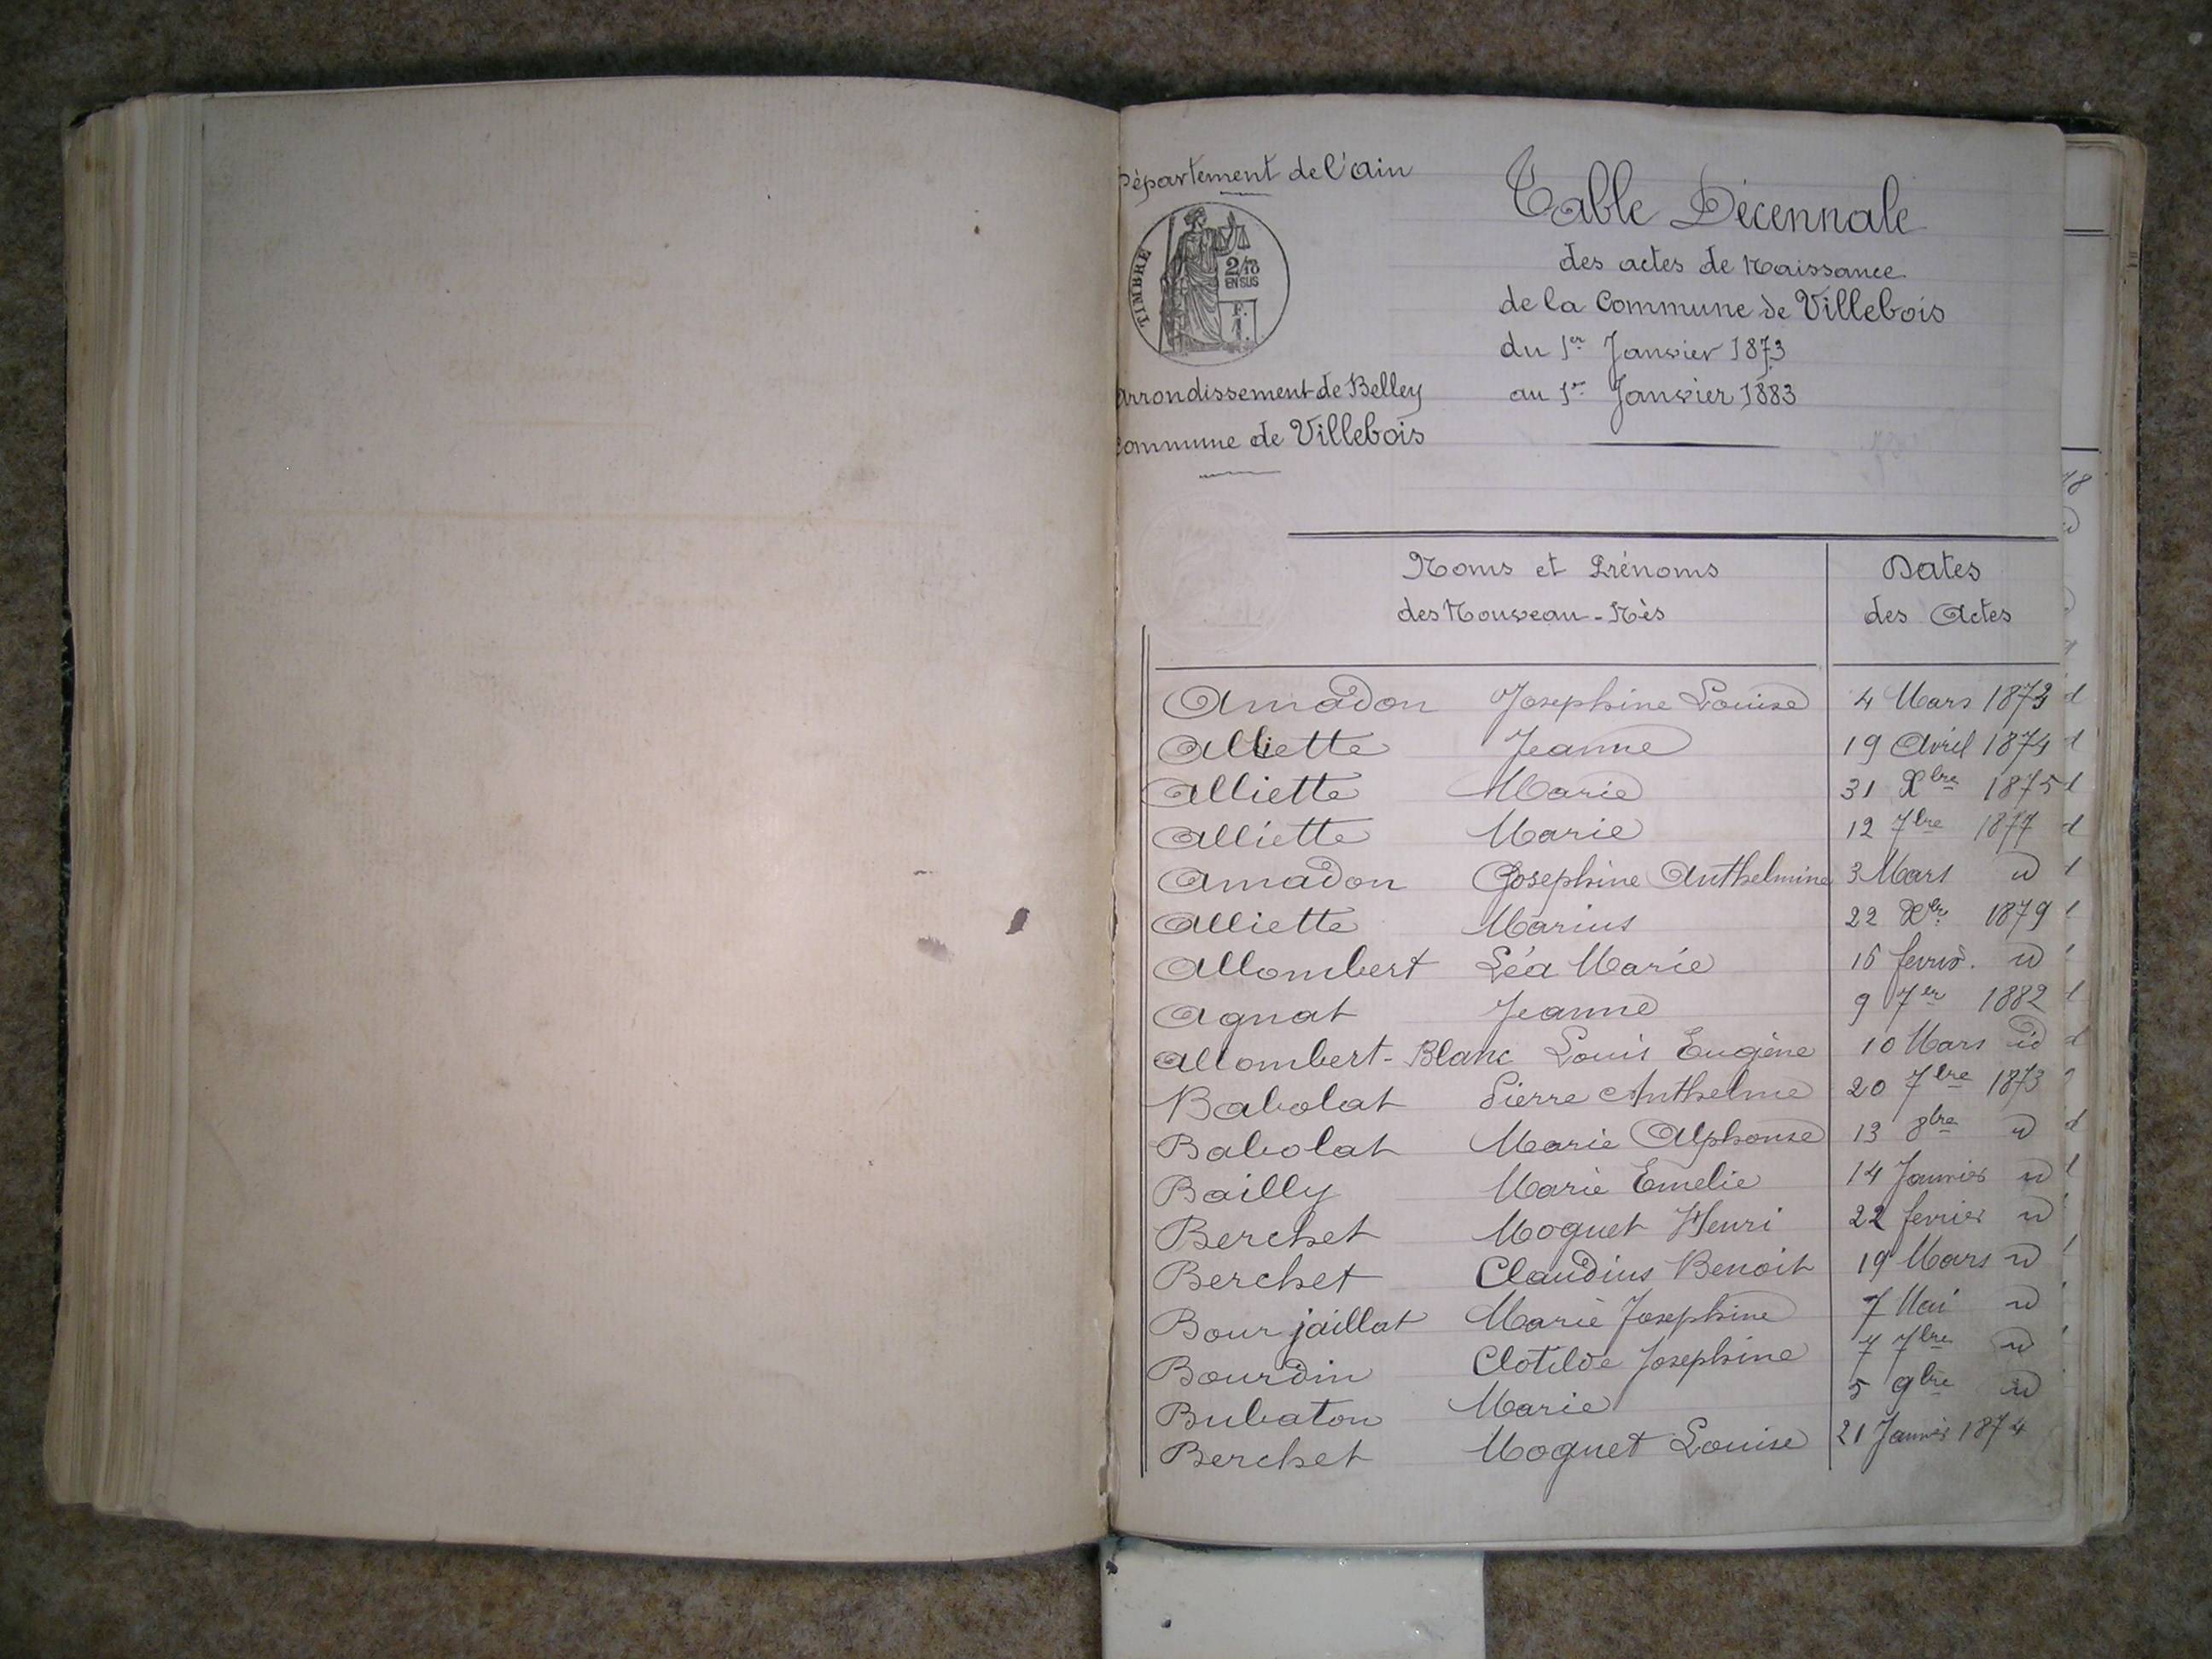 Département de l'Ain
TIMBRE
2/10
EN SUS
F.
1.
Arrondissement de Belley
Commune de Villebois
Table Décennale
des actes de Naissance
de la Commune de Villebois
du 1er Janvier 1873
au 1er Janvier 1883
Noms et Prénoms des Nouveau-Nés
Dates des Actes
Amadon Josephine Louise 4 Mars 1873
Alliette Jeanne 19 Avril 1874
Alliette Marie 31 Xbre 1875
Alliette Marie 12 7bre 1877
Amadon Josephine Anthelmine 3 Mars id
Alliette Marius 22 Xbre 1879
Allombert Léa Marie 16 fevrier id
Agnat Jeanne 9 7er 1882
Allombert-Blanc Louis Eugène 10 Mars id
Babolat Pierre Anthelme 20 7bre 1873
Babolat Marie Alphonse 13 8bre id
Bailly Marie Emelie 14 Janvier id
Berchet Moguet Henri 22 fevrier id
Berchet Claudius Benoit 19 Mars id
Bourjaillat Marie Josephine 7 Mai id
Bourdin Clotilde Josephine 7 7bre id
Bubaton Marie 5 9bre id
Berchet Moguet Louise 21 Janvier 1874